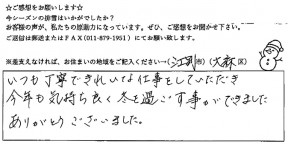 ☆ご感想をお願いします☆
今シーズンの排雪はいかがでしたか？
お客様の声が、私たちの原動力になっています。ぜひ、ご感想をお聞かせ下さい。
ご返信は郵送またはFAX(011-879-1951)にてお願い致します。
※差支えなければ、お住まいの地域をご記入ください→(江別市)(大麻区)
いつも丁寧できれいな仕事をしていただき
今年も気持ち良く冬を過ごす事ができました
ありがとうございました。